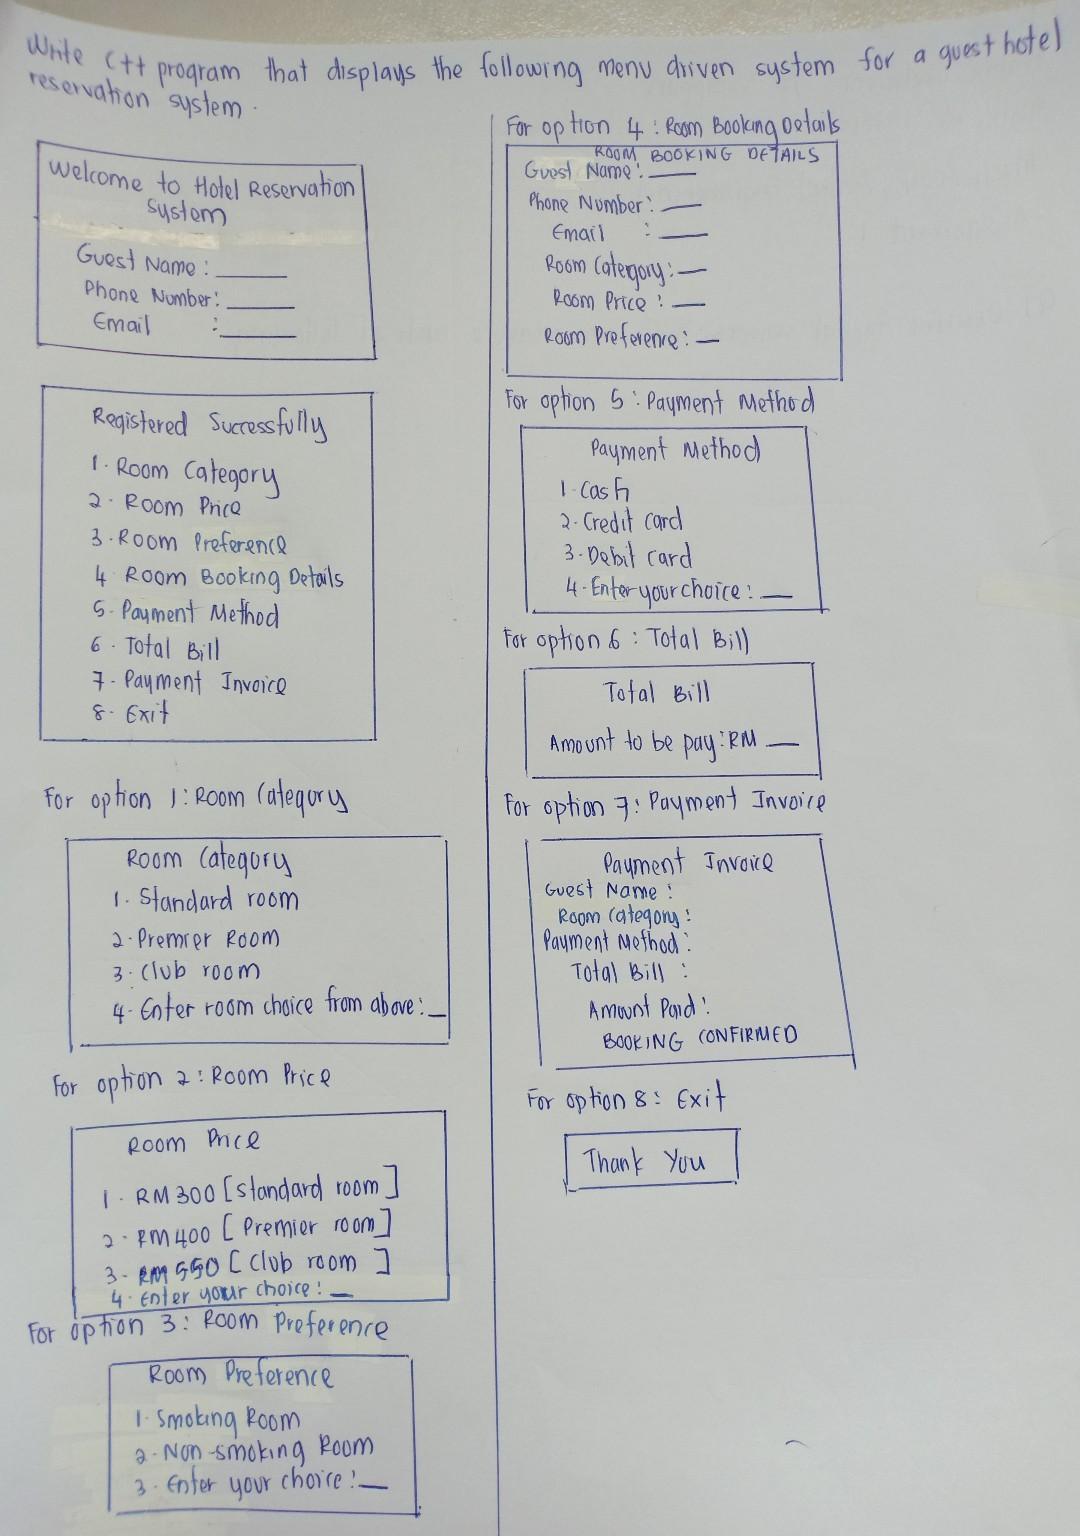 Write C++ program that displays the following menu driven system for a guest hotel
reservation system.
Welcome to Hotel Reservation
System
Guest Name :
Phone Number :
Email :
Registered Successfully
1. Room Category
2. Room Price
3. Room Preference
4 Room Booking Details
5. Payment Method
6. Total Bill
7. Payment Invoice
8. Exit
For option 1: Room Category
Room Category
1. Standard room
2. Premier Room
3. Club room
4. Enter room choice from above:_
For option 2: Room Price
Room Price
1. RM 300 [standard room]
2. RM 400 [Premier room]
3- RM 550 [Club room ]
4. Enter your choice: _
For option 3: Room Preference
Room Preference
1. Smoking Room
2. Non-smoking Room
3. Enter your choice:_
For option 4 : Room Booking Details
ROOM BOOKING DETAILS
Guest Name: __
Phone Number: __
Email : __
Room Category: __
Room Price : __
Room Preference: _
For option 5: Payment Method
Payment Method
1. Cash
2. Credit card
3. Debit card
4. Enter your choice: __
For option 6: Total Bill
Total Bill
Amount to be pay: RM __
For option 7: Payment Invoice
Payment Invoice
Guest Name :
Room Category :
Payment Method :
Total Bill :
Amount Paid :
BOOKING CONFIRMED
For option 8: Exit
Thank You